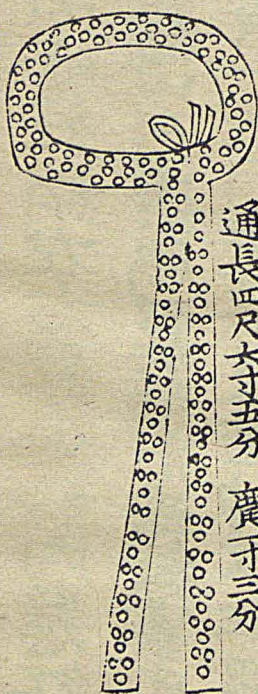 通長四尺六寸五分 廣一寸三分